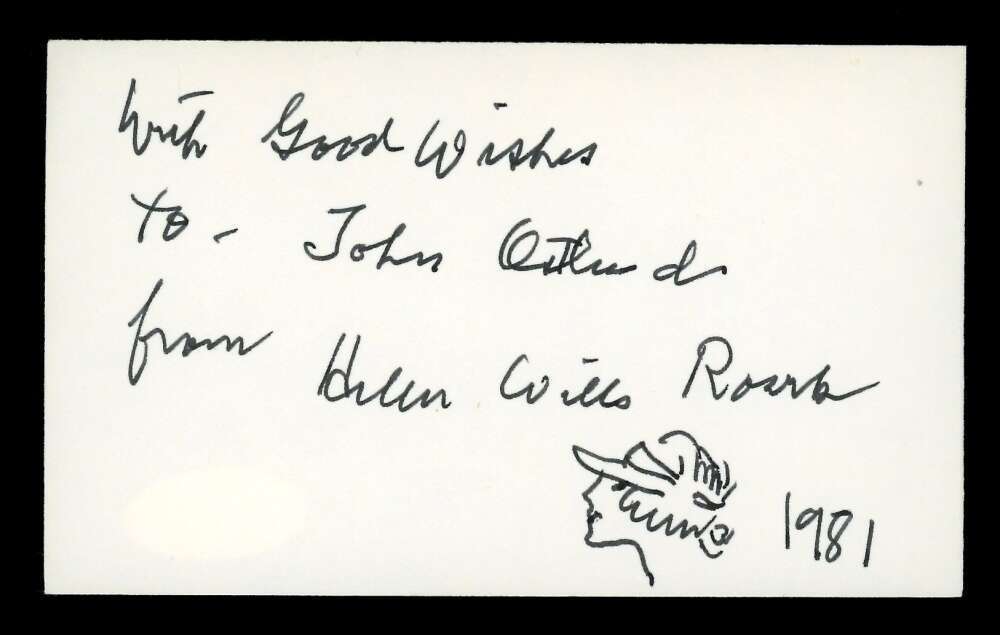 With Good Wishes
to - John
from
Helen Wills Roark
1981